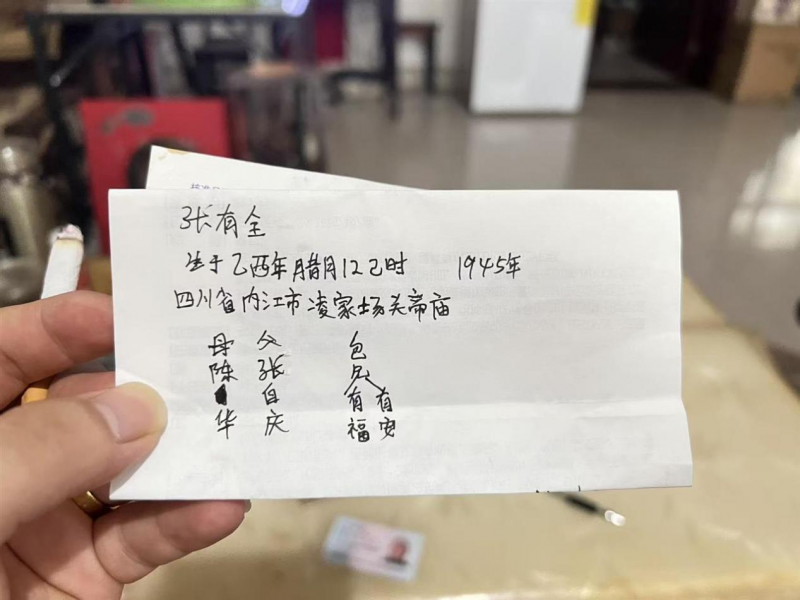 张有全
生于乙酉年腊月12己时 1945年
四川省内江市凌家场关帝庙
母陈华
父张自庆
有福
有安